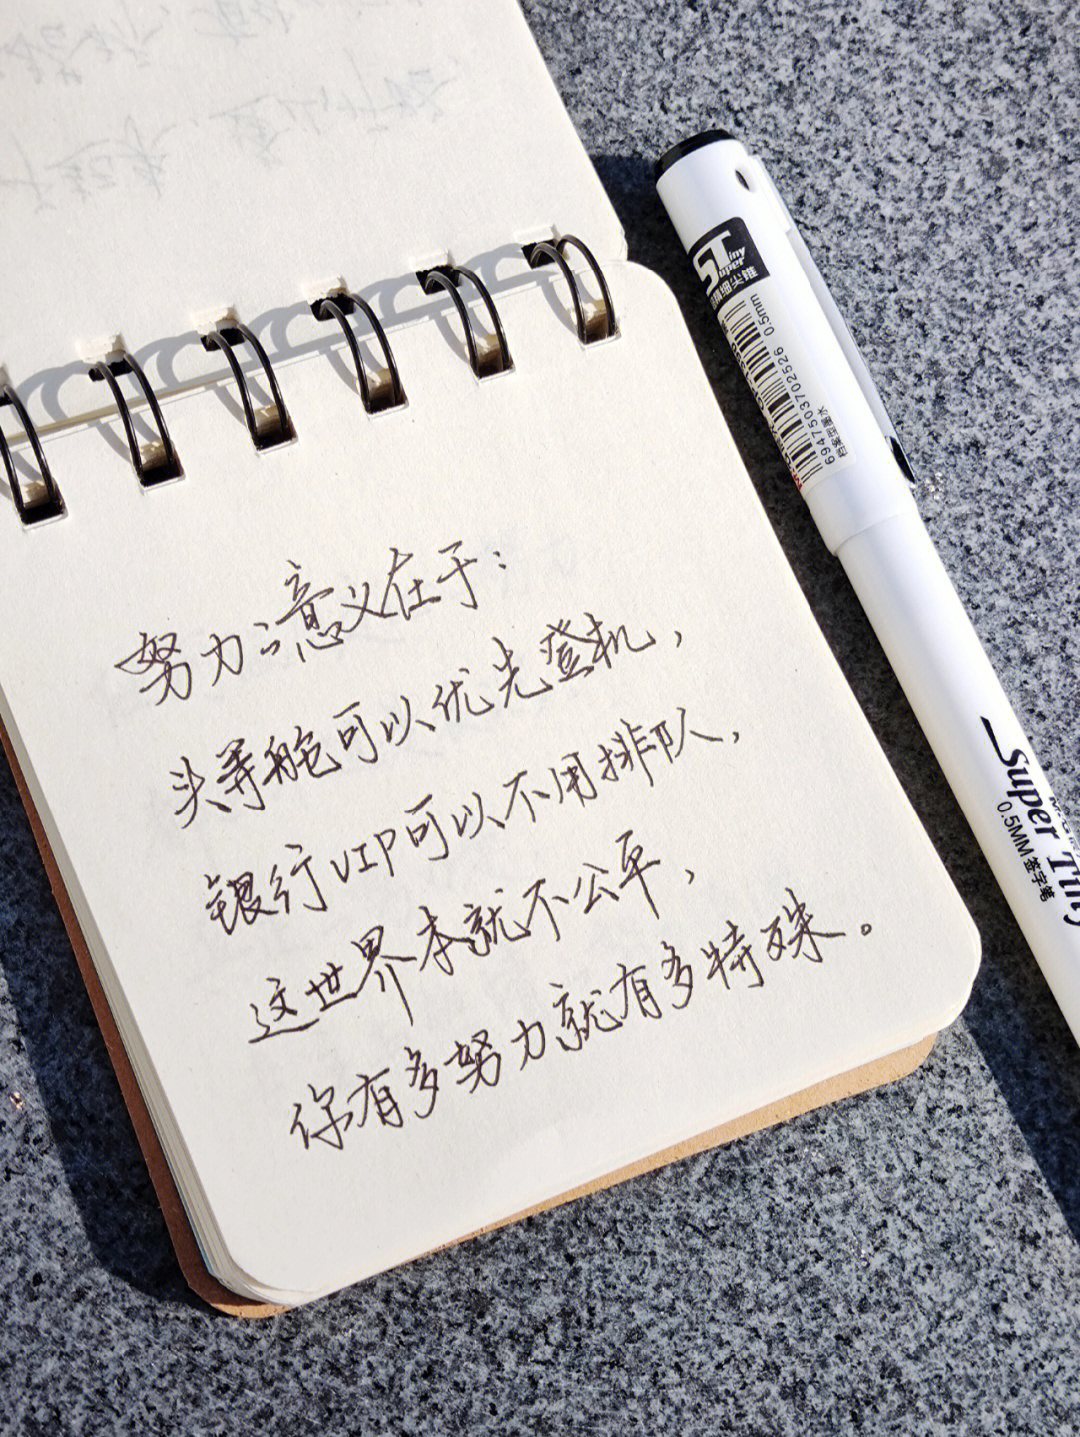 努力的意义在于：
头等舱可以优先登机，
银行VIP可以不用排队，
这世界本就不公平，
你有多努力就有多特殊。
STiny
Super
精细尖锥
6947503702526 0.5mm
Super Tiny
0.5MM 签字笔